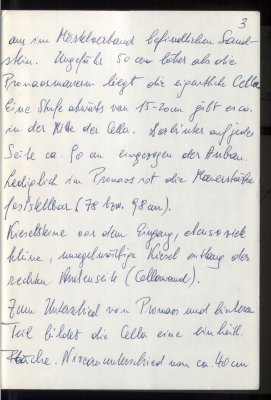 3
aus im Mörtelverband befindlichen Sand-
stein. Ungefähr 50 cm tiefer als die
Pronaosmauern liegt die eigentliche Cella
Eine Stufe abwärts von 15-20cm gibt es ca.
in der Mitte der Cella. Dahinter auf jeder
Seite ca. 90 cm eingezogen der Anbau.
Lediglich im Pronaos ist die Mauerstärke
feststellbar (78 bzw. 98 cm).
Kieselsteine vor dem Eingang, ebenso
kleine, unregelmäßige Kiesel entlang der
rechten Antenseite (Cellawand).
Zum Unterschied von Pronaos und hinterem
Teil bildet die Cella eine einheitl.
Fläche. Niveauunterschied von ca. 40 cm